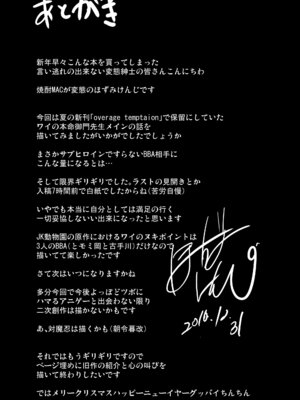 あとがき
新年早々こんな本を買ってしまった
言い逃れの出来ない変態紳士の皆さんこんにちわ
焼酎MACが変態のほずみけんじです
今回は夏の新刊「overage temptaion」で保留にしていた
ワイの本命御門先生メインの話を
描いてみましたがいかがでしたでしょうか
まさかサブヒロインですらないBBA相手に
こんな量になるとは…
そして限界ギリギリでした。ラストの見開きとか
入稿7時間前で白紙でしたからね(苦労自慢)
いやでも本当に自分としては満足の行く
一切妥協しない出来になったと思います
JK動物園の原作におけるワイのヌキポイントは
3人のBBA(とモミ岡と古手川)だけなので
描いてて楽しかったです
さて次はいつになりますかね
多分今回で今後よっぽどツボに
ハマるアニゲーと出会わない限り
二次創作は描かないかもです
あ、対魔忍は描くかも(朝令暮改)
2016.12.31
それではもうギリギリですので
ページ埋めに旧作の紹介と心の叫びを
描いて終わりたいです
ではメリークリスマスハッピーニューイヤーグッバイちんちん